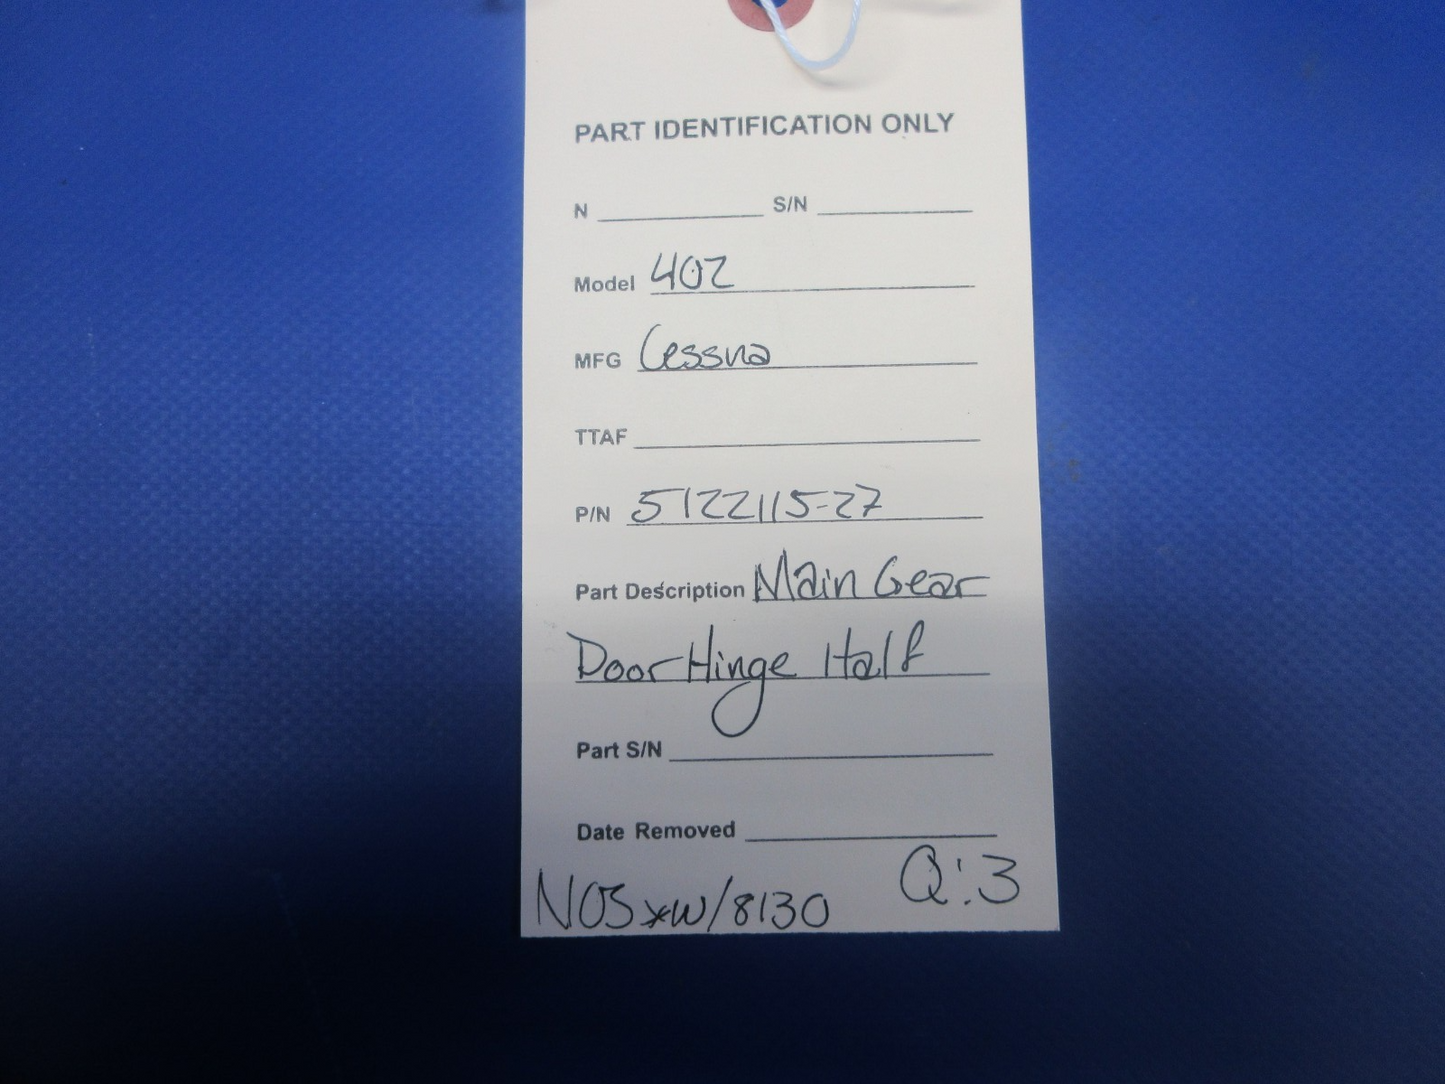 PART IDENTIFICATION ONLY
N S/N
Model 402
MFG Cessna
TTAF
P/N 5122115-27
Part Description Main Gear
Door Hinge Half
Part S/N
Date Removed
Q:3
NOS *W/8130